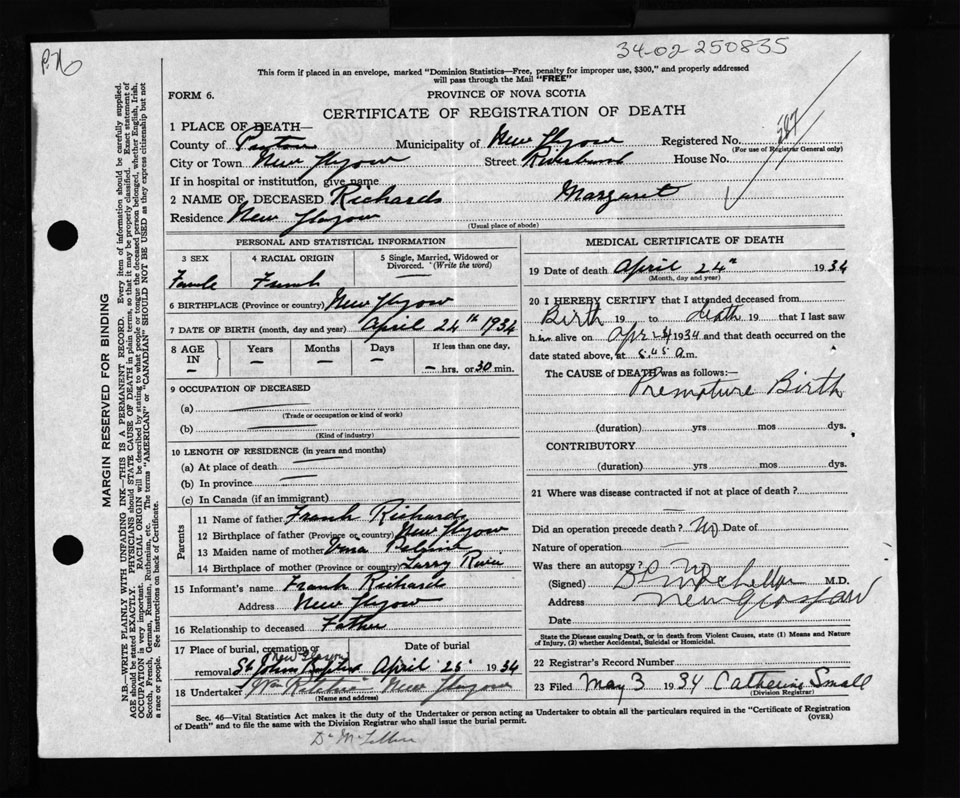 34-02-250835
This form if placed in an envelope, marked "Dominion Statistics—Free, penalty for improper use, $300," and properly addressed
will pass through the Mail "FREE"
FORM 6.
PROVINCE OF NOVA SCOTIA
CERTIFICATE OF REGISTRATION OF DEATH
1 PLACE OF DEATH—
County of Municipality of New Glasgow Registered No. 587
(For use of Registrar General only)
City or Town New Glasgow Street House No.
If in hospital or institution, give name
2 NAME OF DECEASED Richards Margaret
Residence New Glasgow
(Usual place of abode)
PERSONAL AND STATISTICAL INFORMATION
3 SEX 4 RACIAL ORIGIN 5 Single, Married, Widowed or Divorced. (Write the word)
Female French —
6 BIRTHPLACE (Province or country) New Glasgow
7 DATE OF BIRTH (month, day and year) April 24th 1934
8 AGE IN — Years — Months — Days — If less than one day, — hrs. or 30 min.
9 OCCUPATION OF DECEASED
(a)
(Trade or occupation or kind of work)
(b)
(Kind of industry)
10 LENGTH OF RESIDENCE (in years and months)
(a) At place of death
(b) In province
(c) In Canada (if an immigrant)
Parents
11 Name of father Frank Richards
12 Birthplace of father (Province or country) New Glasgow
13 Maiden name of mother
14 Birthplace of mother (Province or country)
15 Informant's name Frank Richards
Address New Glasgow
16 Relationship to deceased Father
17 Place of burial, cremation or removal Date of burial
New Glasgow
St John Baptist April 25 1934
18 Undertaker New Glasgow
(Name and address)
MEDICAL CERTIFICATE OF DEATH
19 Date of death April 24th 1934
(Month, day and year)
20 I HEREBY CERTIFY that I attended deceased from
Birth 19 to death 19 that I last saw
h alive on Apr 24 1934 and that death occurred on
date stated above, at 5.45 a.m.
The CAUSE of DEATH was as follows:—
Premature Birth
(duration) yrs mos dys.
CONTRIBUTORY
(duration) yrs mos dys.
21 Where was disease contracted if not at place of death?
—
Did an operation precede death? No Date of
Nature of operation
Was there an autopsy? No
(Signed) M.D.
Address New Glasgow
Date
State the Disease causing Death, or in death from Violent Causes, state (1) Means and Nature
of Injury, (2) whether Accidental, Suicidal or Homicidal.
22 Registrar's Record Number
23 Filed May 3 1934 Catherine Small
(Division Registrar)
Sec. 46—Vital Statistics Act makes it the duty of the Undertaker or person acting as Undertaker to obtain all the particulars required in the "Certificate of Registration
of Death" and to file the same with the Division Registrar who shall issue the burial permit.
(OVER)
MARGIN RESERVED FOR BINDING
N.B.—WRITE PLAINLY WITH UNFADING INK—THIS IS A PERMANENT RECORD. Every item of information should be carefully supplied.
AGE should be stated EXACTLY. PHYSICIANS should STATE CAUSE OF DEATH in plain terms, so that it may be properly classified. Exact statement of
OCCUPATION is very important. RACIAL ORIGIN will be described by stating to what people or tongue the deceased person belonged, whether English, Irish,
Scotch, French, German, Russian, Ruthenian, etc. The terms "AMERICAN" or "CANADIAN" SHOULD NOT BE USED as they express citizenship but not
a race or people. See instructions on back of Certificate.